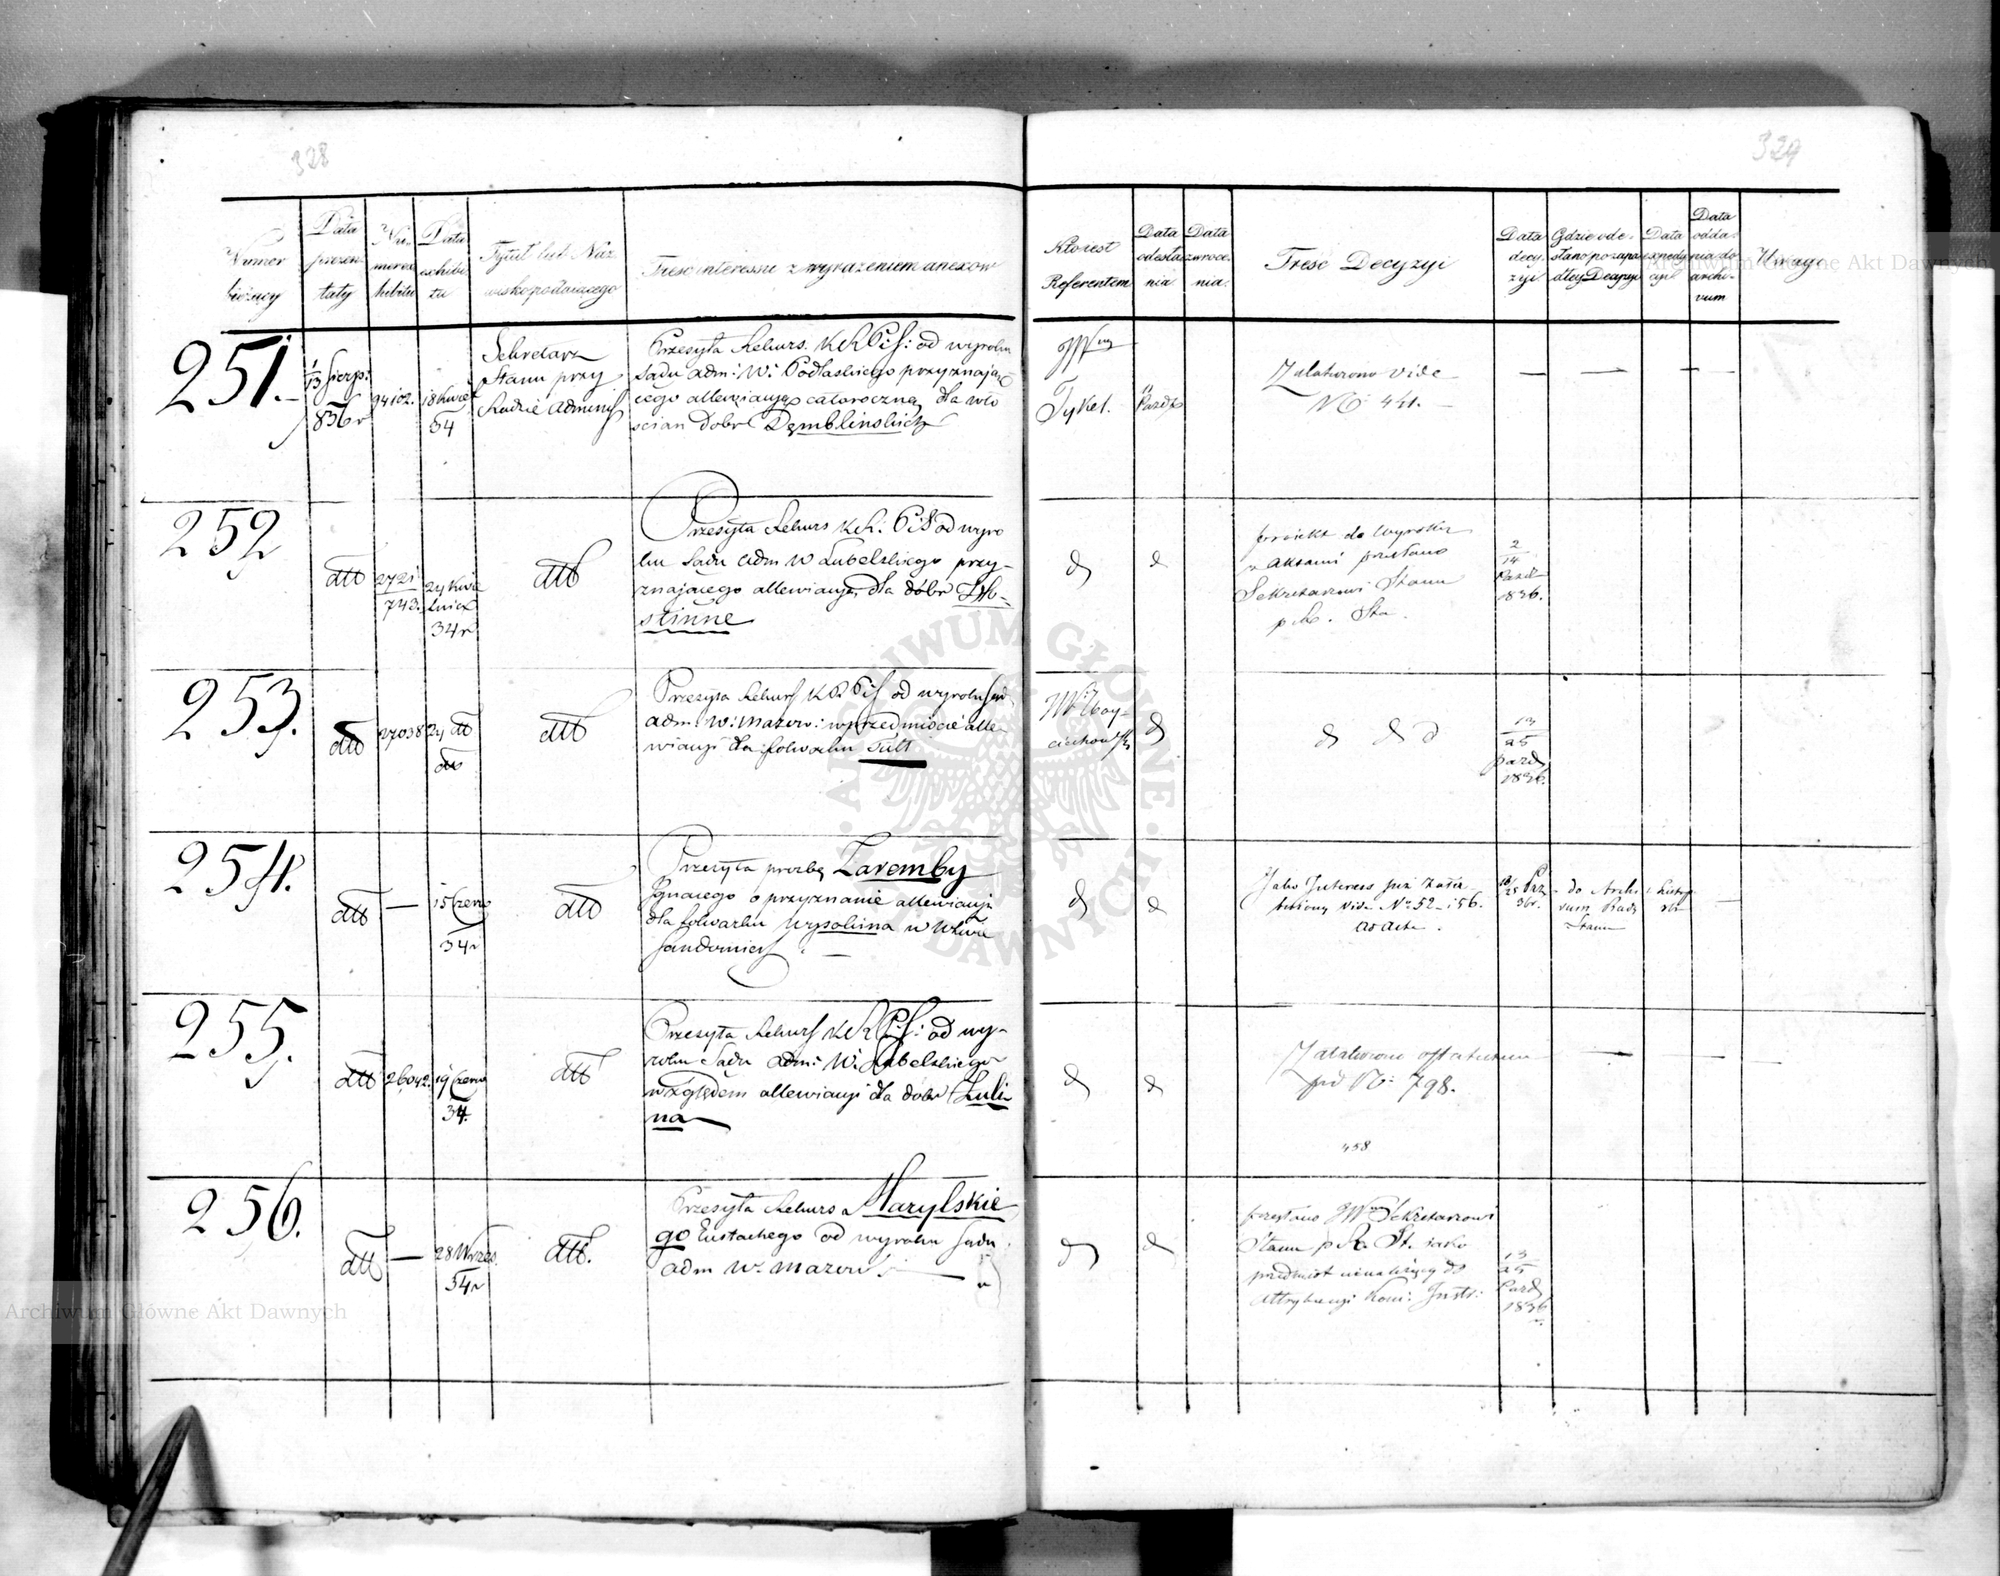 328
329
Numer bieżący
Data prezentaty
Numer exhibitu
Data exhibitu
Tytuł lub Nazwisko podaiacego
Treść interessu z wyrażeniem anexów
Referentem
Data odesłania
Data zwrocenia
Treść Decyzyi
Data decyzyi
Data expedycyi
Data oddania do archivum
Uwagi
251.
1/13 Sierp: 836 r
18 Kwiet 34
Sekretarz
Stanu przy
Radzie Adminis
Przesyła Rekurs K R P i S: od wyroku
Sadu adm: W: Podlaskiego przyznaiaą
cego allewiancyą całoroczną dla wło
scian dobr Demblinskich
Tykel.
11 Pazdz
Załatwiono vide
No: 441.
252
dtto
2721/743.
24 Kwietnia 34 r
dtto
Przesyła Rekurs K R: P i S od wyro
ku Sadu adm W Lubelskiego przy-
znaiącego allewiancyą dla dóbr
projekt do Wyroku
z aktami przesłano
Sekretarzowi Stanu
2/14 Pazdz 1836.
253.
dtto
27038
24 dto dto
dtto
Przesyła Rekurs K R P i S od wyroku Sad
adm: W: Mazow: w przedmiocie alle-
wiancyi dla folwarku Tułt
Woyciechowski
13/25 Pazdz 1836.
254.
dtto
—
15 Czerw 34 r
dtto
Przesyła prozbę Zaremby
Ignacego o przyznanie allewiancyi
dla folwarku Wysokina w Wztwie
Sandomiers
Jako Interess już załat
wiony vide No 52 i 56.
ad acta.
do Archi
vum Rady
Stanu
255.
dtto
26042.
19 Czerw 34.
dtto
Przesyła Rekurs K R P i S: od wy-
roku Sadu adm: W: Lubelskiego
względem allewiancyi dla dobr Żuli
na
Załatwiono ostatecznie
pod No: 798.
458
256.
dtto
—
28 Wrzes. 34 r
dtto.
Przesyła Rekurs Marylskie
go Eustachego od wyroku Sadu
adm W. Mazow
przesłano JW Sekretarzowi
Stanu p R. St. iako
przedmiot nienależący do
attrybucyi Kom: Instr:
13/25 Pazdz 1836
ARCHIWUM GŁÓWNE AKT DAWNYCH
Archiwum Główne Akt Dawnych
Archiwum Główne Akt Dawnych